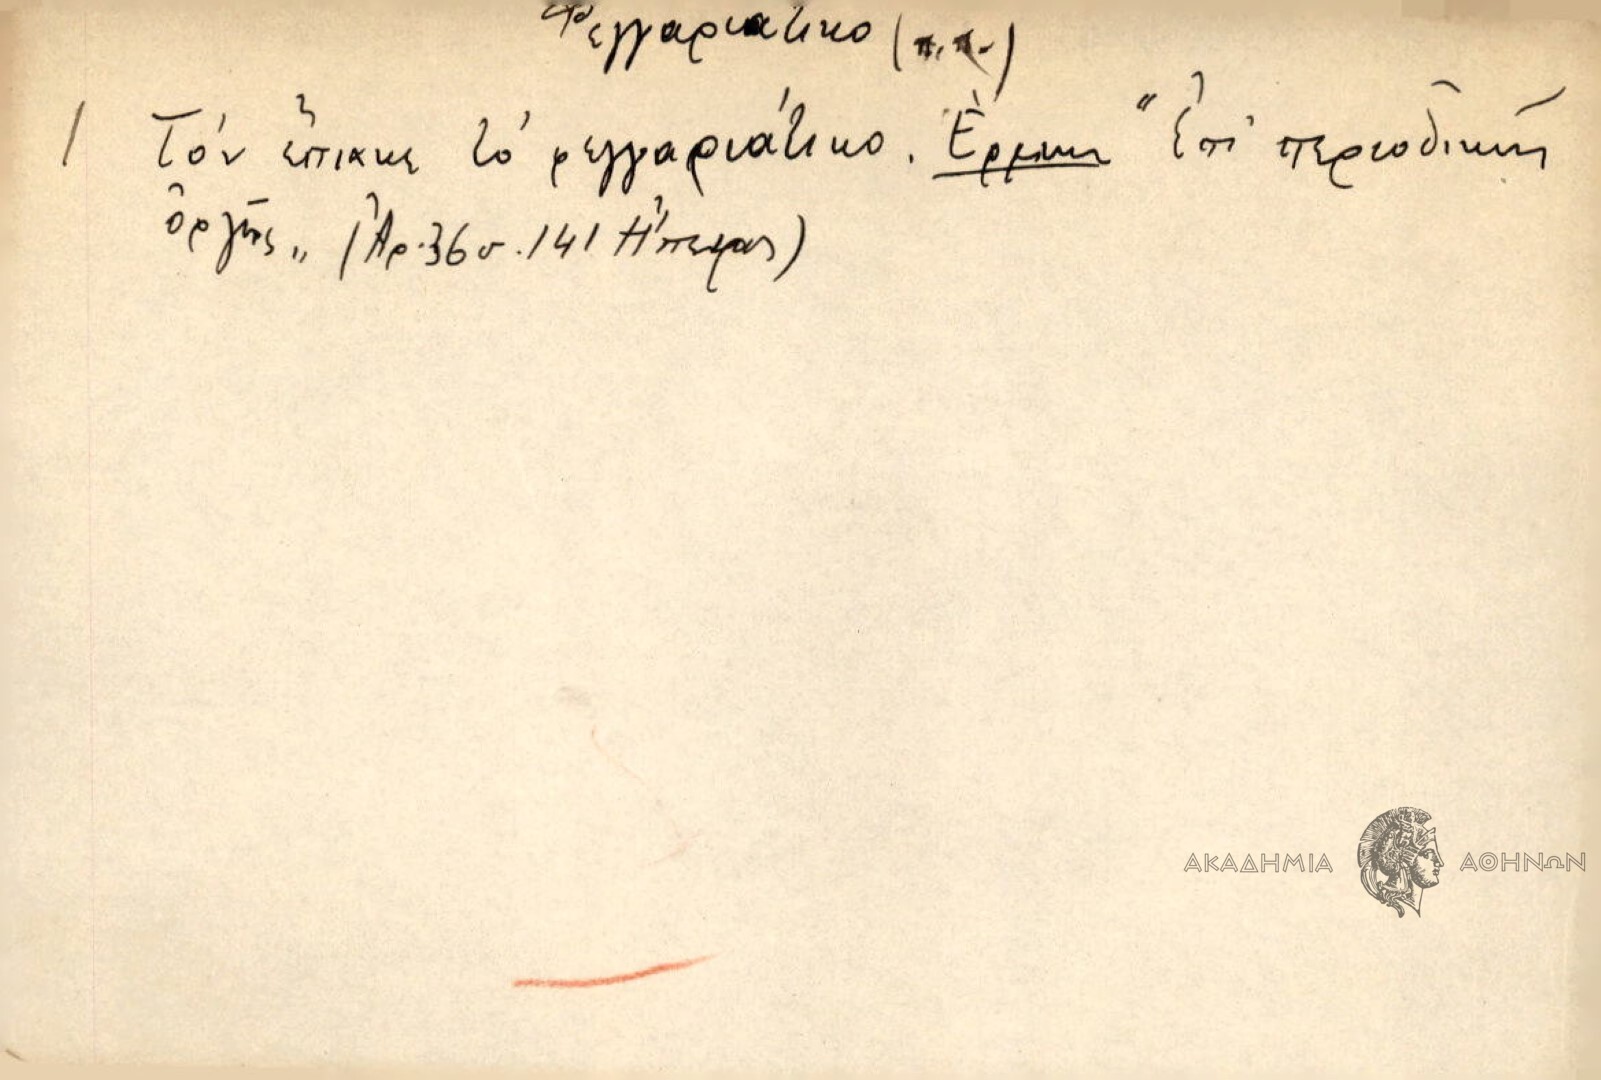 Φεγγαριάτικο (π.π.)
1 Τόν ἔπιακε τό φεγγαριάτικο. Ἑρμην. "Ἐπί περιοδικῆς
ὀργῆς" (Ἀρ. 36 σ. 141 Ἤπειρος)
ΑΚΑΔΗΜΙΑ ΑΘΗΝΩΝ